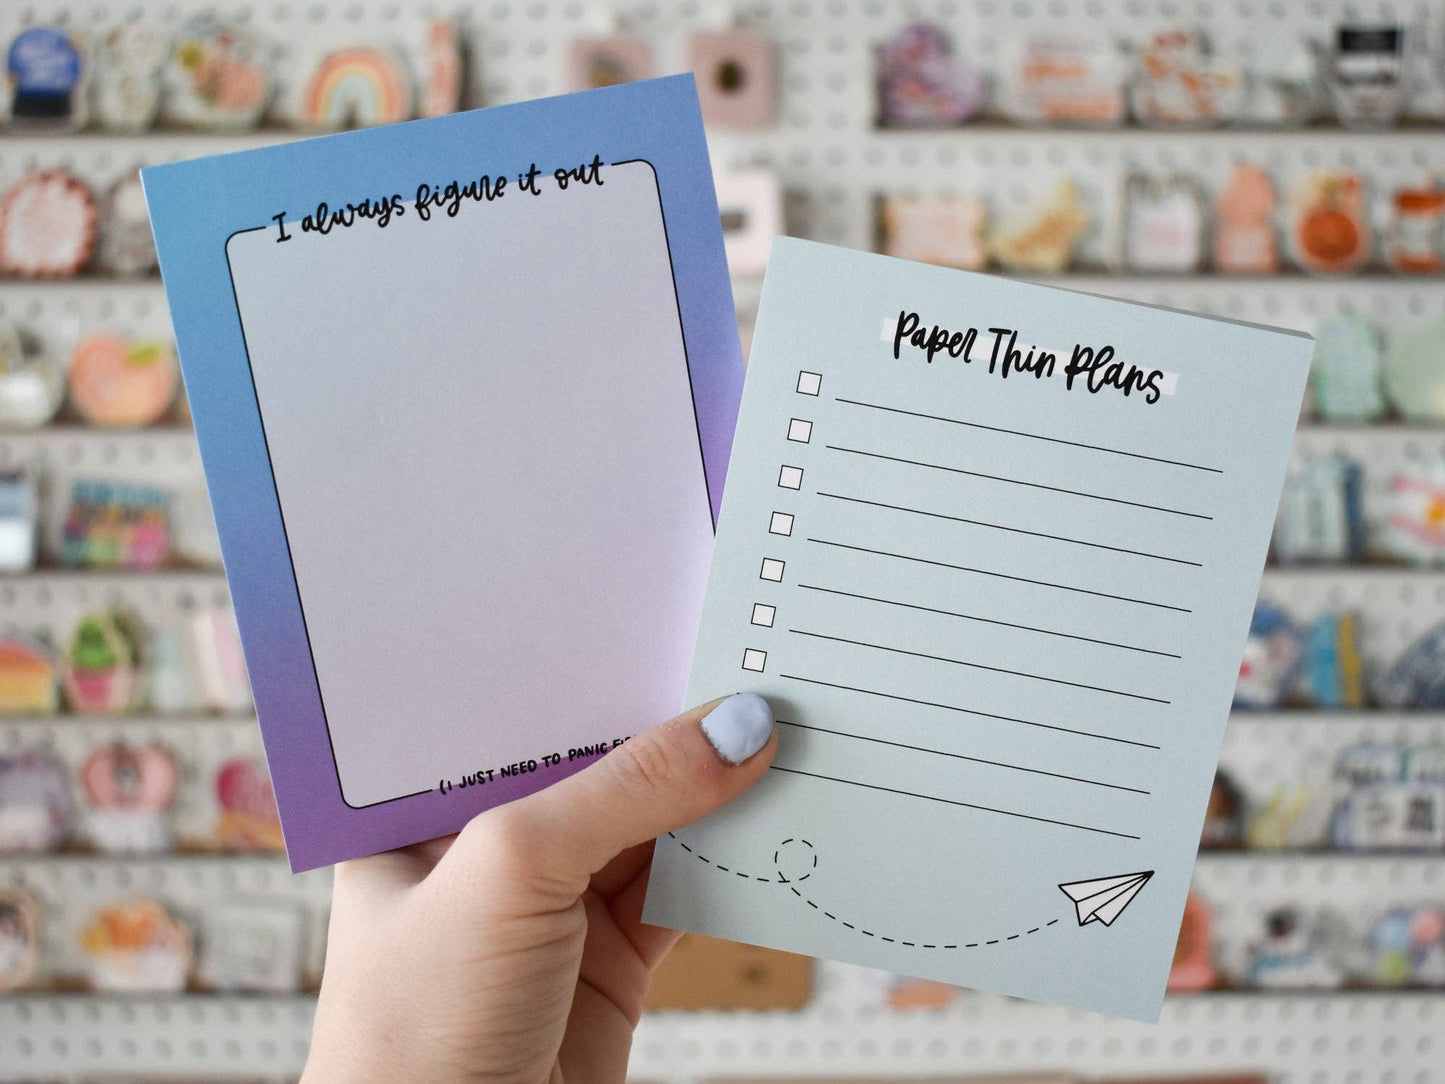 I always figure it out
(I JUST NEED TO PANIC
Paper Thin Plans